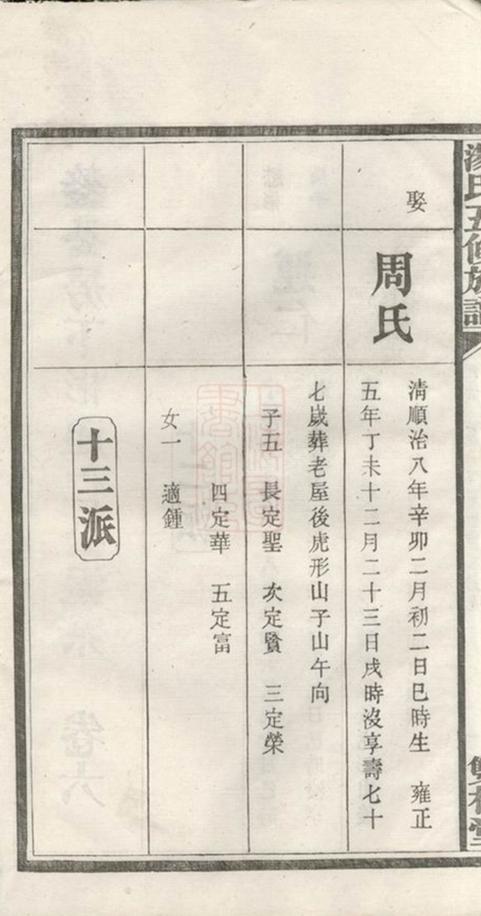 氏五修族譜
娶
周氏
清順治八年辛卯二月初二日巳時生　雍正
五年丁未十二月二十三日戌時沒享壽七十
七歲葬老屋後虎形山子山午向
子五　長定聖　次定賢　三定榮
四定華　五定富
女一　適鍾
十三派